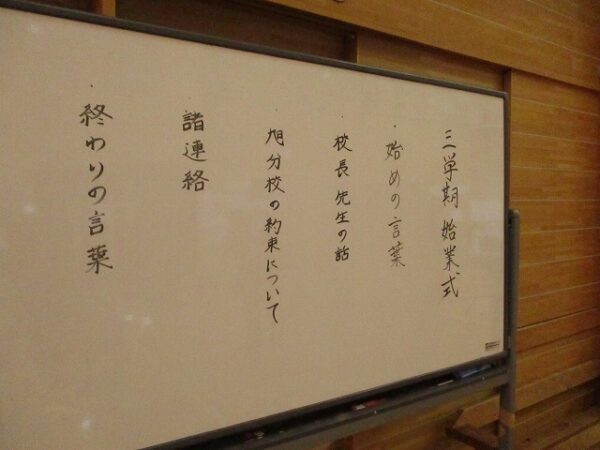 三学期 始業式
・始めの言葉
・校長先生の話
・旭分校の約束について
・諸連絡
・終わりの言葉